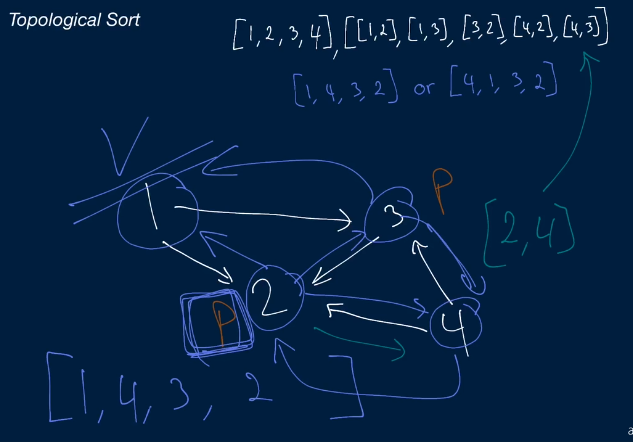 Topological Sort
[1,2,3,4], [[1,2], [1,3], [3,2], [4,2], [4,3]]
[1,4,3,2] or [4,1,3,2]
1
3
P
[2,4]
2
P
4
[1,4,3,2]
a